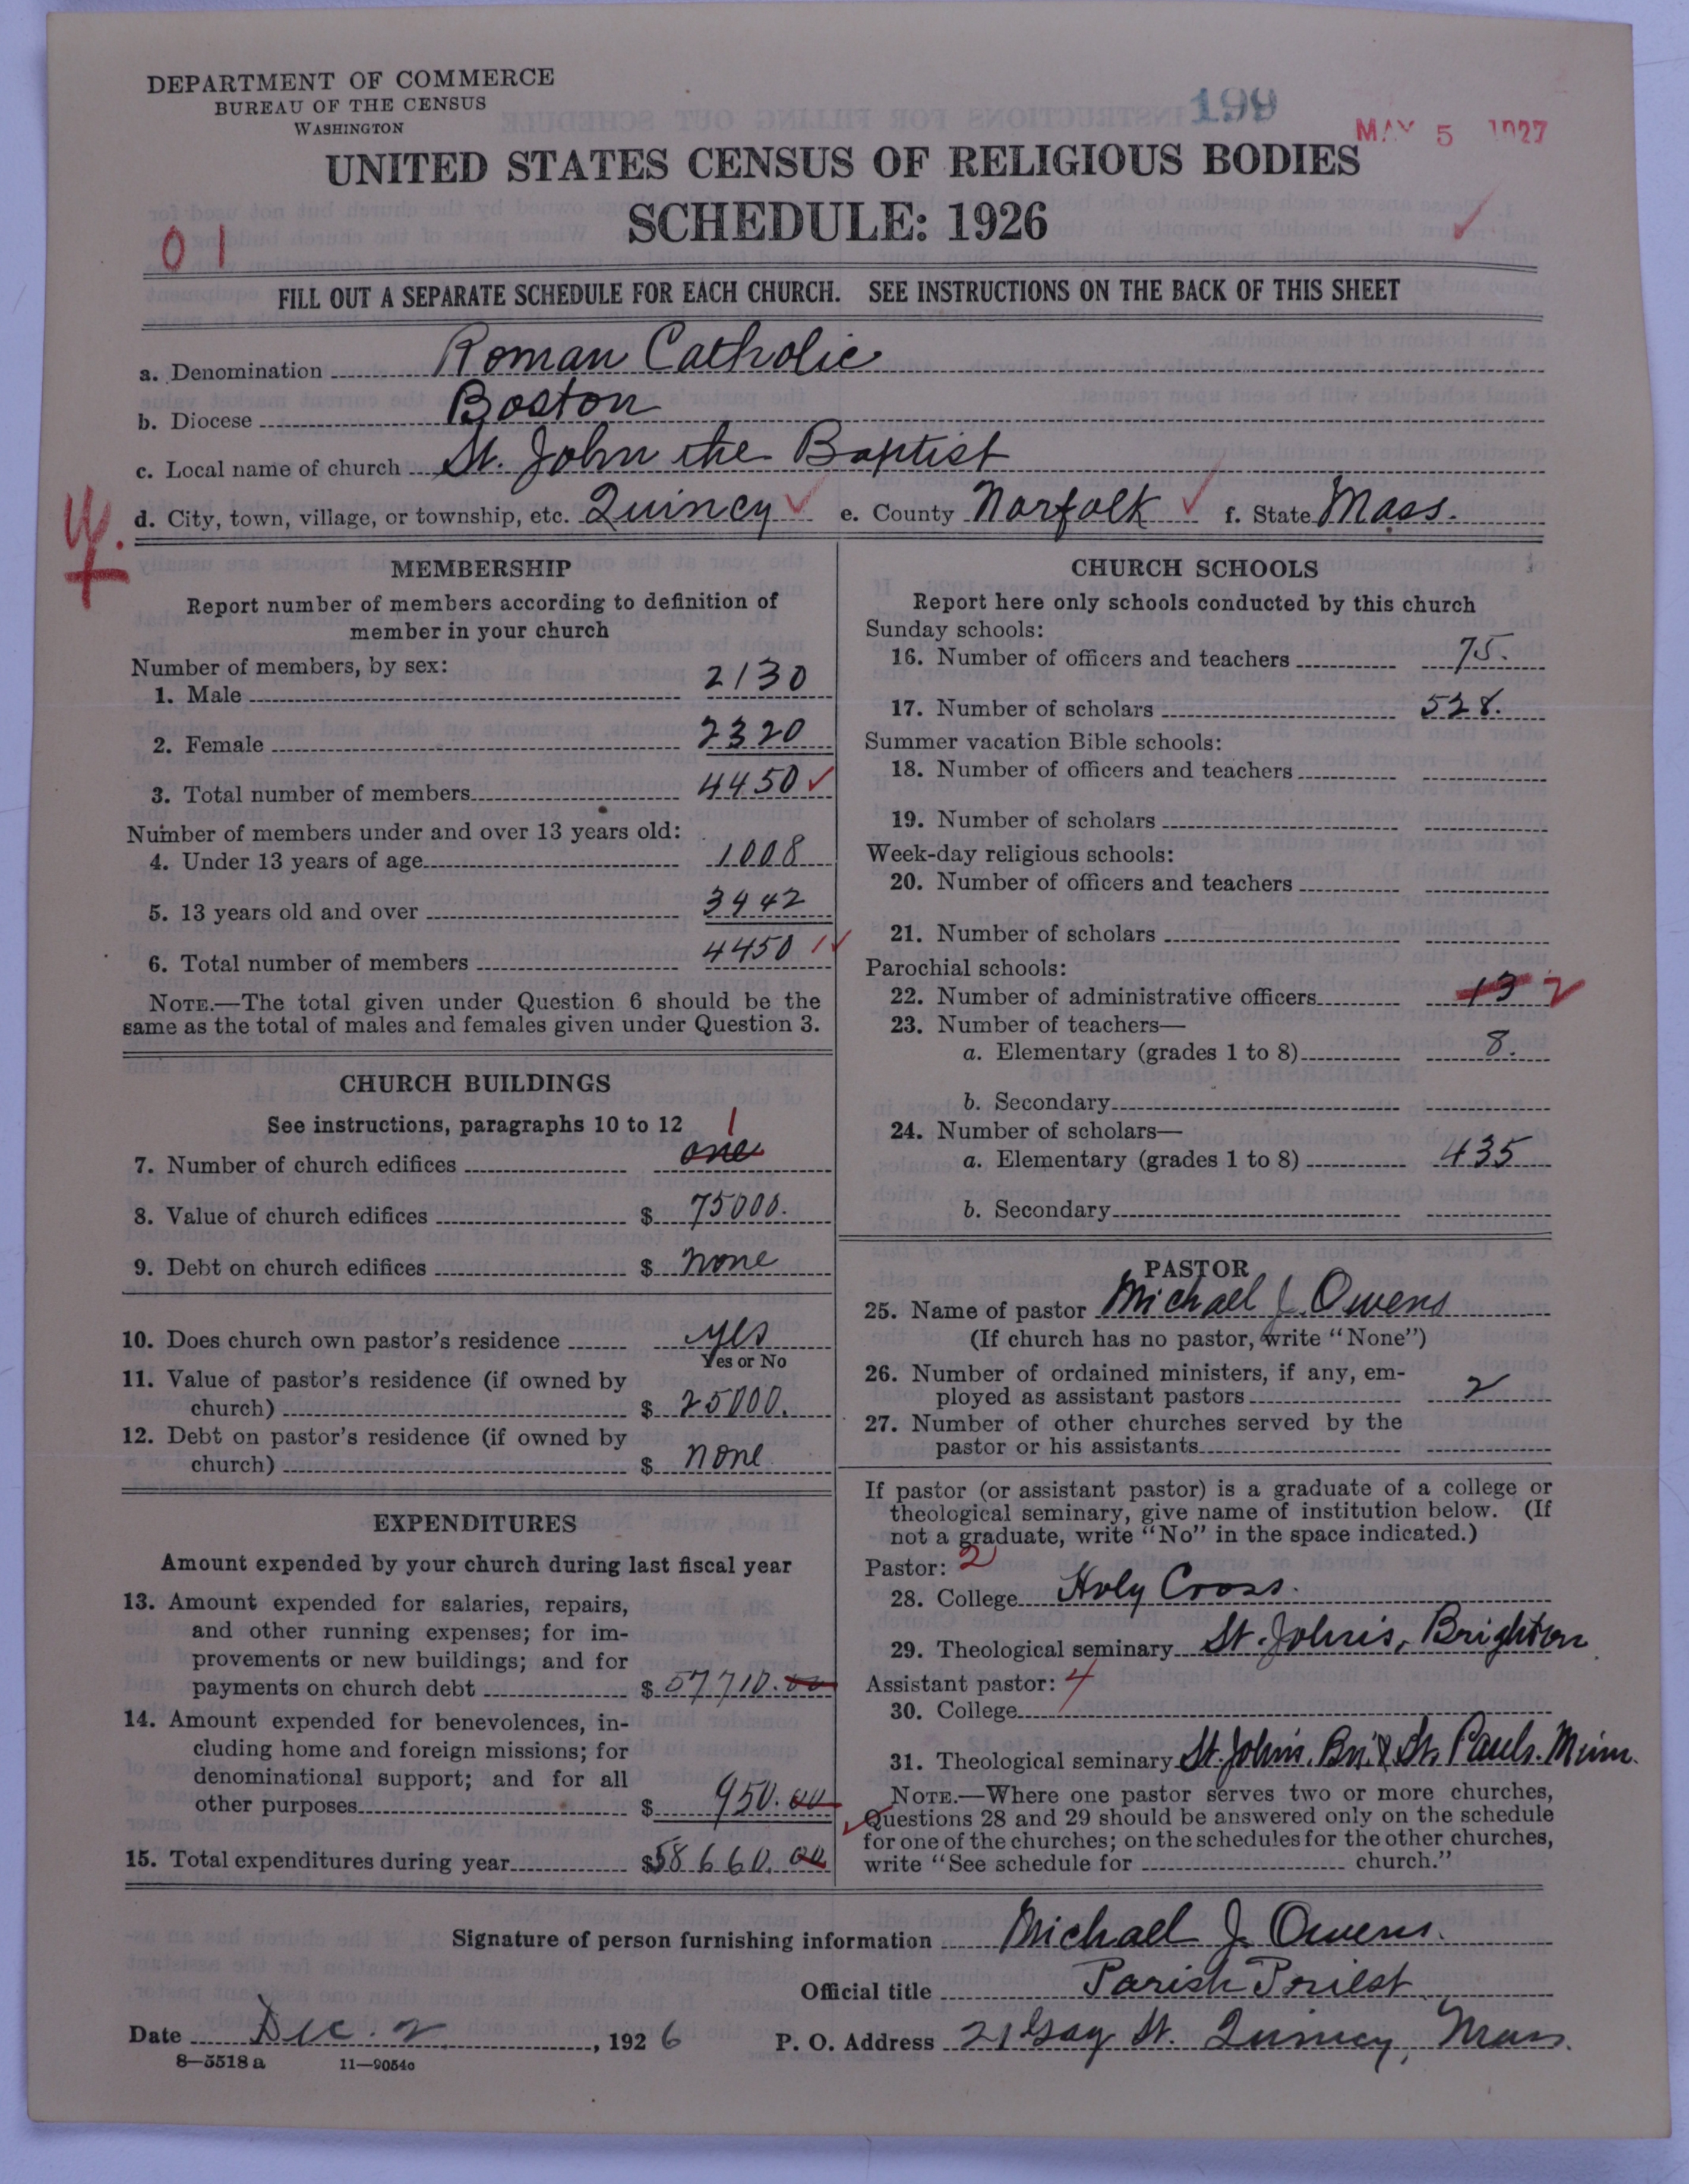 DEPARTMENT OF COMMERCE
BUREAU OF THE CENSUS
WASHINGTON
199
MAY 5 1927
UNITED STATES CENSUS OF RELIGIOUS BODIES
SCHEDULE: 1926
01
FILL OUT A SEPARATE SCHEDULE FOR EACH CHURCH. SEE INSTRUCTIONS ON THE BACK OF THIS SHEET
a. Denomination Roman Catholic
b. Diocese Boston
c. Local name of church St. John the Baptist
d. City, town, village, or township, etc. Quincy ✓ e. County Norfolk ✓ f. State Mass.
MEMBERSHIP
Report number of members according to definition of
member in your church
Number of members, by sex:
1. Male 2130
2. Female 2320
3. Total number of members 4450 ✓
Number of members under and over 13 years old:
4. Under 13 years of age 1008
5. 13 years old and over 3442
6. Total number of members 4450 ✓
NOTE.—The total given under Question 6 should be the
same as the total of males and females given under Question 3.
CHURCH BUILDINGS
See instructions, paragraphs 10 to 12
1
7. Number of church edifices one
8. Value of church edifices $ 75000.
9. Debt on church edifices $ none
10. Does church own pastor's residence yes
Yes or No
11. Value of pastor's residence (if owned by
church) $ 25000.
12. Debt on pastor's residence (if owned by
church) $ none
EXPENDITURES
Amount expended by your church during last fiscal year
13. Amount expended for salaries, repairs,
and other running expenses; for im-
provements or new buildings; and for
payments on church debt $ 57710.00
14. Amount expended for benevolences, in-
cluding home and foreign missions; for
denominational support; and for all
other purposes $ 950.00
15. Total expenditures during year $58660.00
CHURCH SCHOOLS
Report here only schools conducted by this church
Sunday schools:
16. Number of officers and teachers 75.
17. Number of scholars 528.
Summer vacation Bible schools:
18. Number of officers and teachers
19. Number of scholars
Week-day religious schools:
20. Number of officers and teachers
21. Number of scholars
Parochial schools:
22. Number of administrative officers 13 2
23. Number of teachers—
a. Elementary (grades 1 to 8) 8.
b. Secondary
24. Number of scholars—
a. Elementary (grades 1 to 8) 435
b. Secondary
PASTOR
25. Name of pastor Michael J. Owens
(If church has no pastor, write "None")
26. Number of ordained ministers, if any, em-
ployed as assistant pastors 2
27. Number of other churches served by the
pastor or his assistants
If pastor (or assistant pastor) is a graduate of a college or
theological seminary, give name of institution below. (If
not a graduate, write "No" in the space indicated.)
Pastor: 2
28. College Holy Cross.
29. Theological seminary St. John's, Brighton
Assistant pastor: 4
30. College
31. Theological seminary St. John's, Bri. & St. Paul's. Minn.
NOTE.—Where one pastor serves two or more churches,
Questions 28 and 29 should be answered only on the schedule
for one of the churches; on the schedules for the other churches,
write "See schedule for church."
Signature of person furnishing information Michael J. Owens.
Official title Parish Priest
Date Dec. 2, 1926 P. O. Address 21 Gay St. Quincy, Mass.
8—5518a 11—9054c